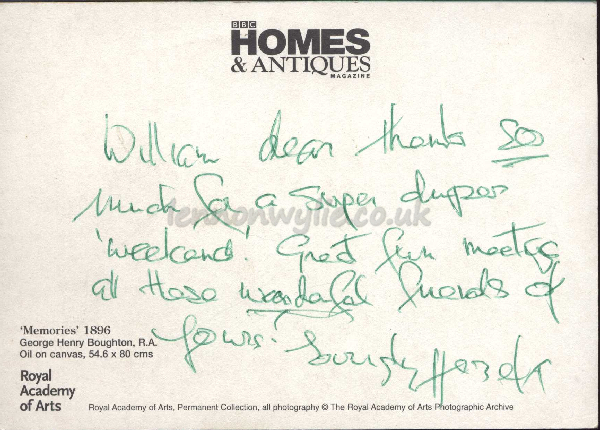 BBC
HOMES
& ANTIQUES
MAGAZINE
William dear thanks soo
much for a super duper
'weekend'. Great fun meeting
all those wonderful friends of
yours!
lenslonwylie.co.uk
'Memories' 1896
George Henry Boughton, R.A.
Oil on canvas, 54.6 x 80 cms
Royal
Academy
of Arts
Royal Academy of Arts, Permanent Collection, all photography © The Royal Academy of Arts Photographic Archive